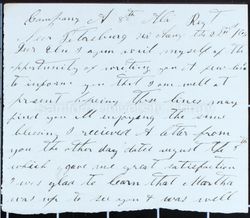 Company A 8th Ala Regt
Near Petersburg Va Aug the
Dear I again avail myself of the
opportunity of writing you a few lines
to inform you that I am well at
present hoping these lines may
find you all enjoying the same
blessing I recieved a letter from
you the other day dated august the 8th
which gave me great satisfaction
I was glad to learn that Martha
was up to see you & was well